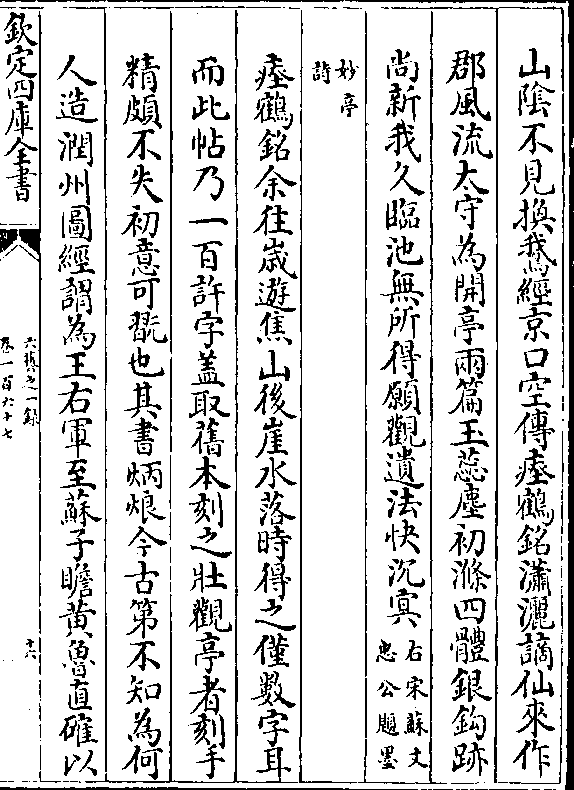 山陰不見換鵝經京口空傳瘞鶴銘瀟灑謫仙來作
郡風流太守為開亭兩篇玉蕊塵初滌四體銀鈎跡
尚新我久臨池無所得願觀遺法快沉㝠右宋蘇文忠公題墨
妙亭詩
瘞鶴銘余往歲遊焦山後崖水落時得之僅數字耳
而此帖乃一百許字盖取舊本刻之壮觀亭者刻手
精頗不失初意可翫也其書炳烺今古第不知為何
人造潤州圖經謂為王右軍至蘇子瞻黄魯直確以
欽定四庫全書
六藝之一録
卷一百六十七
十六